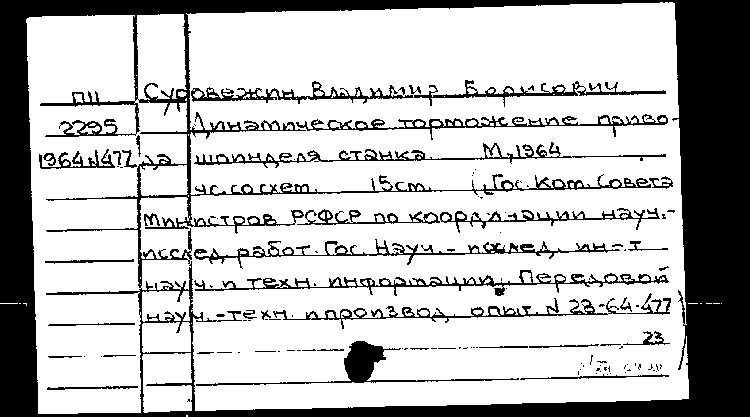 ПII Суровежин, Владимир Борисович
2295 Динамическое торможение приво-
1964 №477 да шпинделя станка М, 1964
чс. со схем. 15см. (Гос. Ком. Совета
Министров РСФСР по координации науч.-
исслед. работ. Гос. Науч.-исслед. ин-т
науч. и техн. информации. Передовой
науч.-техн. и производ. опыт. N 23-64-477
23 )